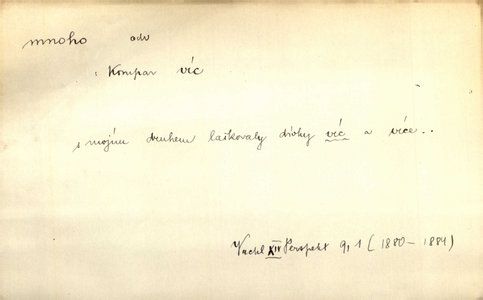 mnoho adv
: Kompar víc
s mojím druhem laškovaly divky víc a více..
Vrchl XIV Perspekt 9,1 (1880-1884)